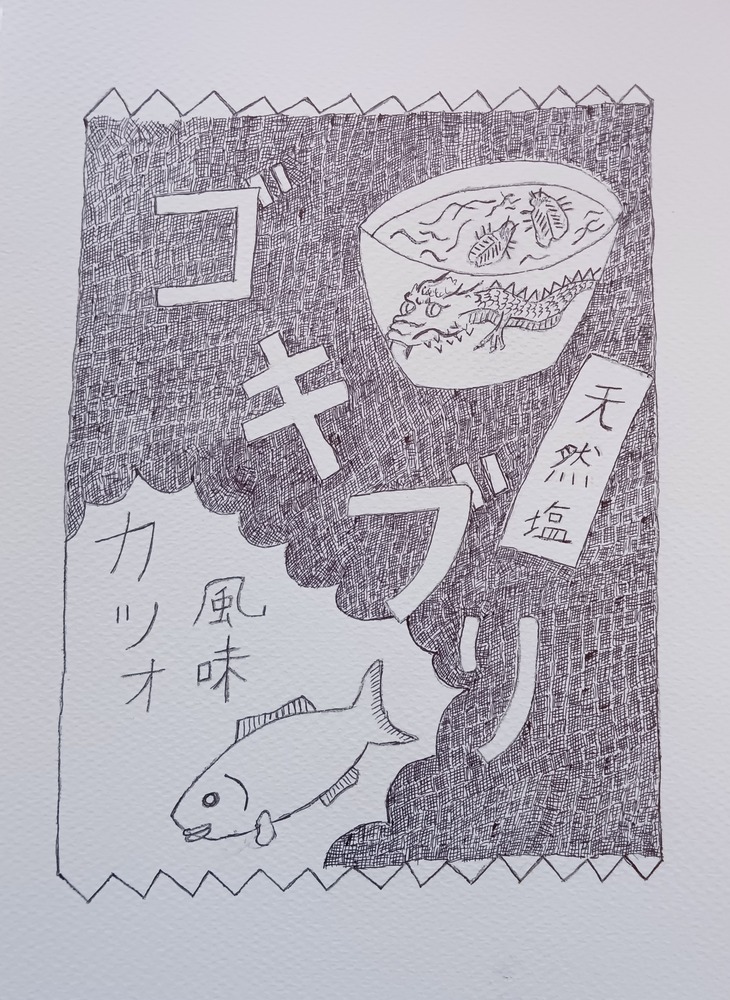 ゴキブリ
天然塩
カツオ
風味